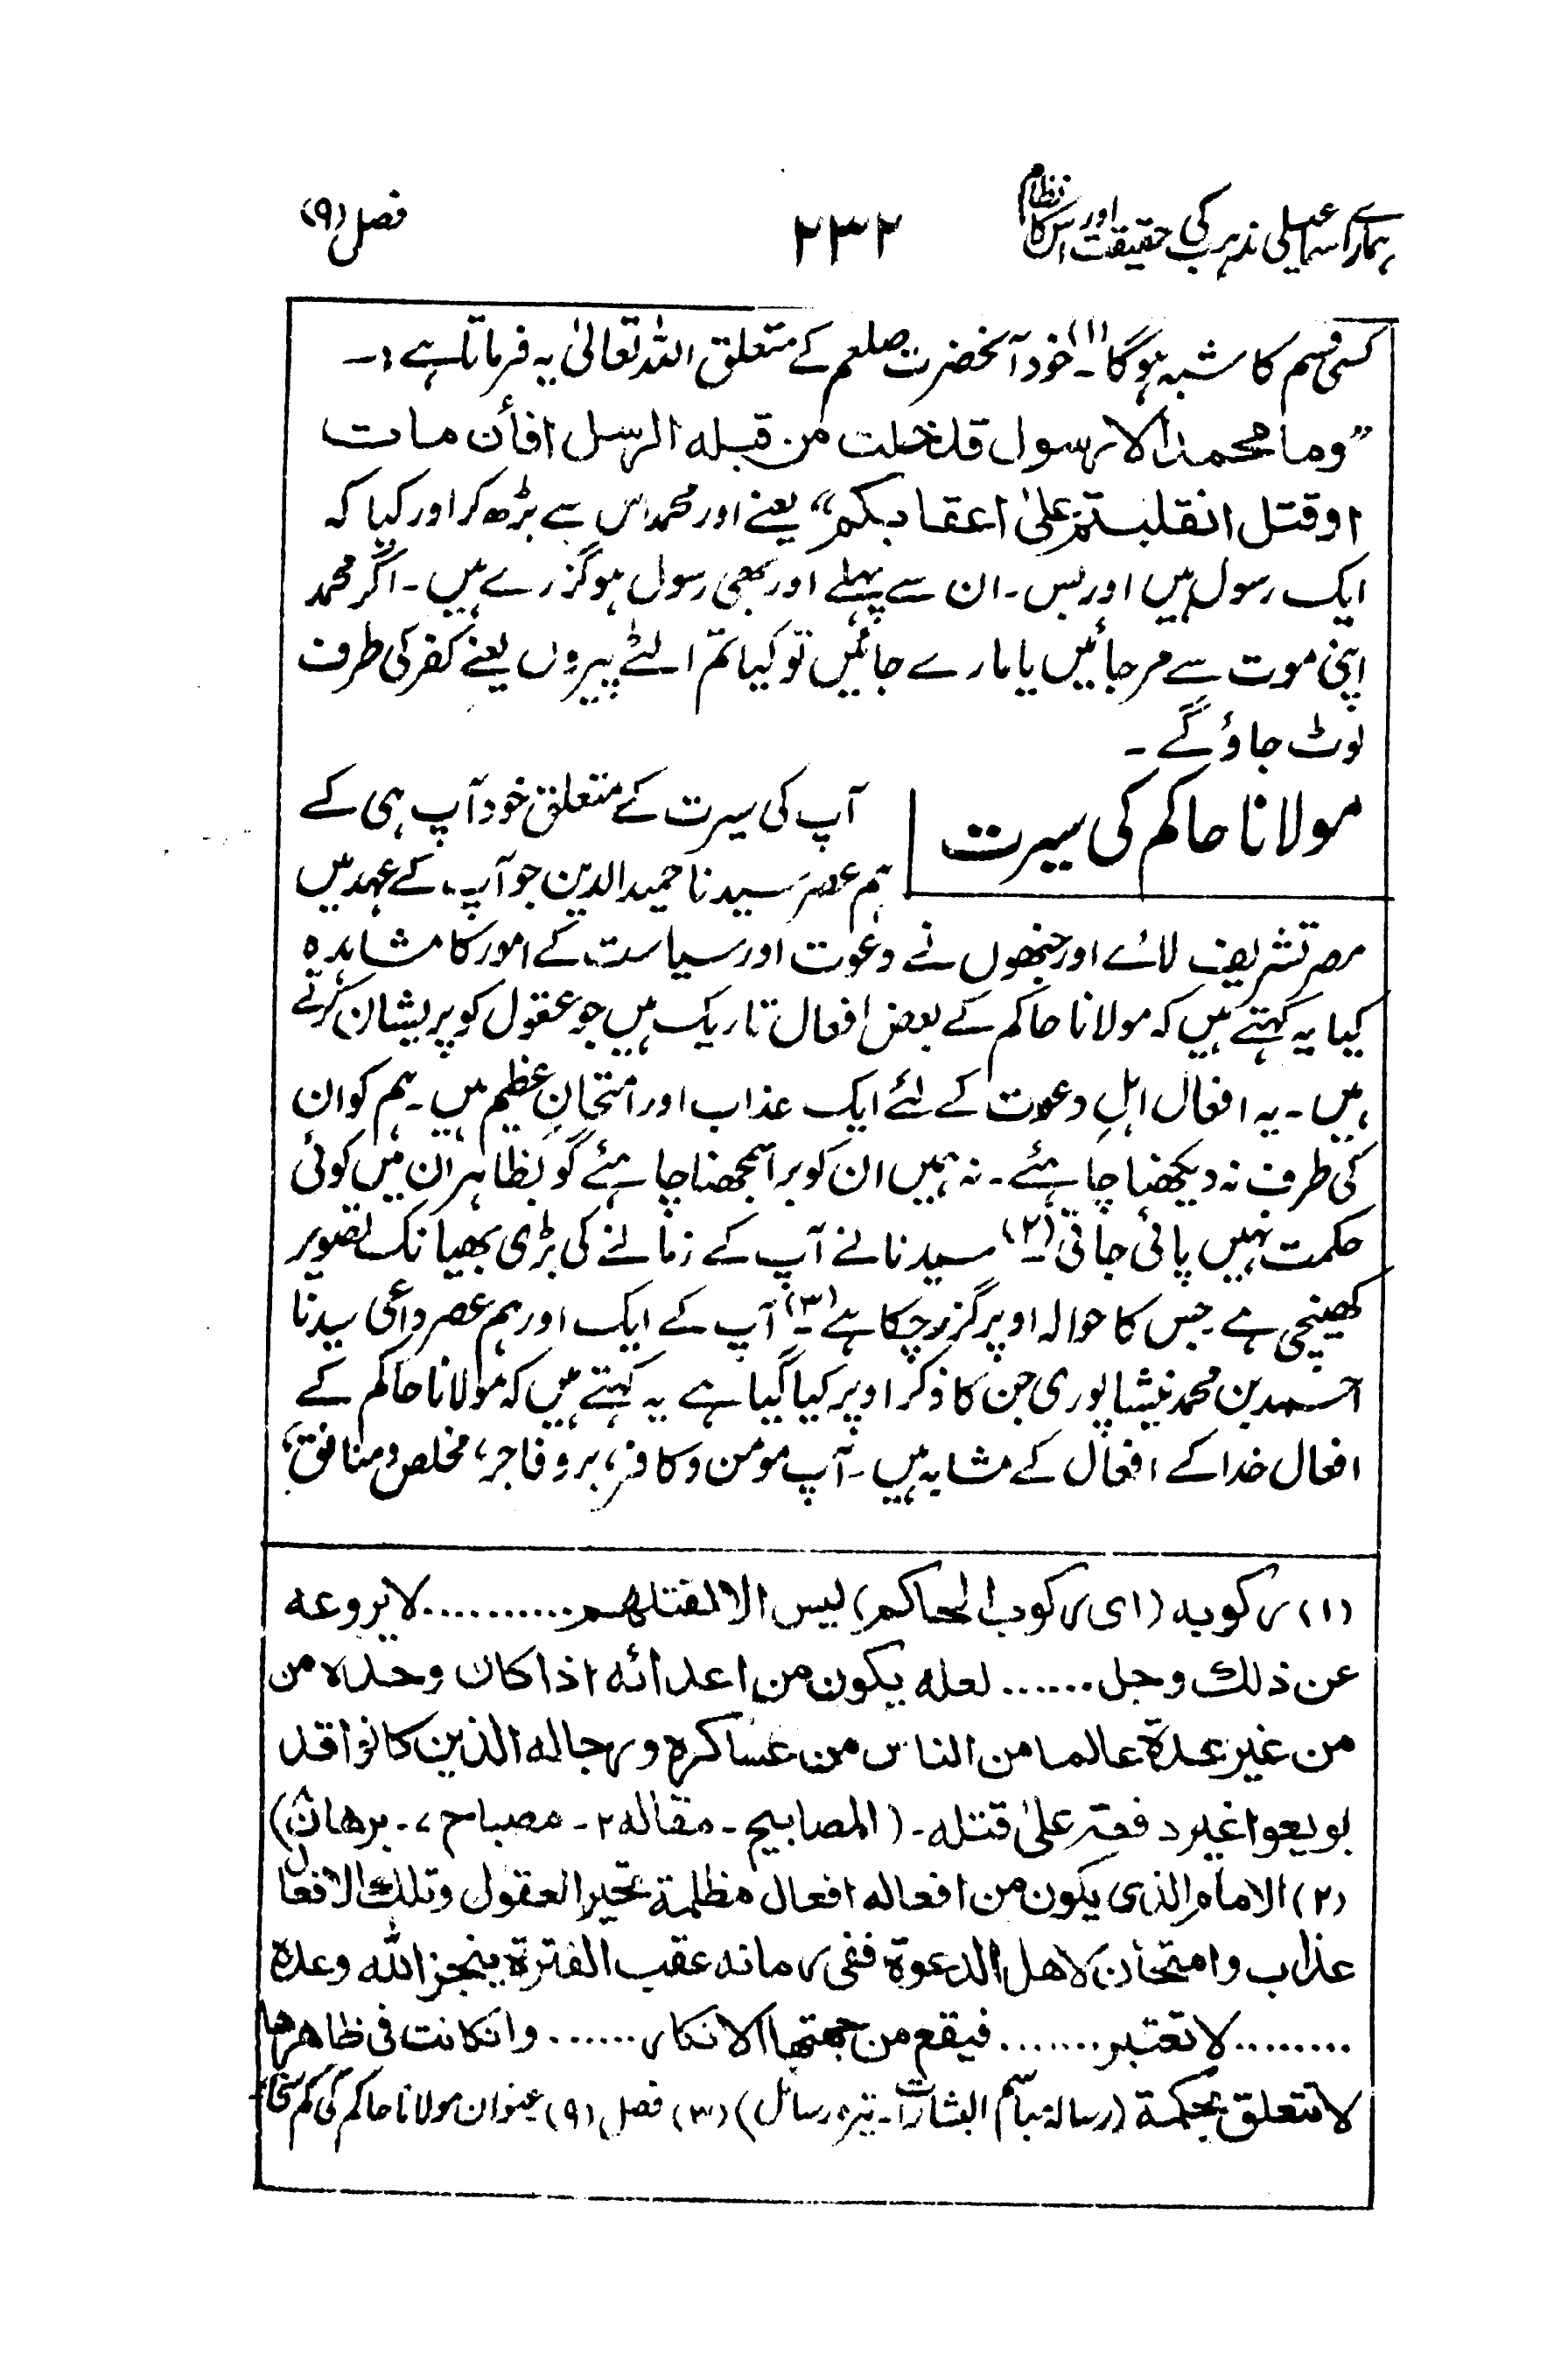 ہمارے اسماعیلی مذہب کی حقیقت اور اس کا نظام ۲۳۲ فصل (۹)
کسی قسم کا شبہ ہوگا (۱)۔ خود آنحضرت صلعم کے متعلق اللہ تعالیٰ یہ فرماتا ہے :۔
”وما محمد الا رسول قد خلت من قبله الرسل افأن مات
او قتل انقلبتم علیٰ اعقابکم“ یعنے اور محمد اس سے بڑھ کر اور کیا کہ
ایک رسول ہیں اور بس۔ ان سے پہلے اور بھی رسول ہو گزرے ہیں۔ اگر محمد
اپنی موت سے مر جائیں یا مارے جائیں تو کیا تم الٹے پیروں یعنے کفر کی طرف
لوٹ جاؤ گے ۔
مولانا حاکم کی سیرت
آپ کی سیرت کے متعلق خود آپ ہی کے
ہم عصر سیدنا حمید الدین جو آپ کے عہد میں
مصر تشریف لائے اور جنھوں نے دعوت اور سیاست کے امور کا مشاہدہ
کیا یہ کہتے ہیں کہ مولانا حاکم کے بعض افعال تاریک ہیں جو عقول کو پریشان کرتے
ہیں۔ یہ افعال اہلِ دعوت کے لئے ایک عذاب اور امتحانِ عظیم ہیں۔ ہم کو ان
کی طرف نہ دیکھنا چاہئے۔ نہ ہمیں ان کو برا سمجھنا چاہئے گو بظاہر ان میں کوئی
حکمت نہیں پائی جاتی (۲)۔ سیدنا نے آپ کے زمانے کی بڑی بھیانک تصویر
کھینچی ہے جس کا حوالہ اوپر گزر چکا ہے (۳)۔ آپ کے ایک اور ہم عصر داعی سیدنا
احمد بن محمد نیشاپوری جن کا ذکر اوپر کیا گیا ہے یہ کہتے ہیں کہ مولانا حاکم کے
افعال خدا کے افعال کے مشابہ ہیں۔ آپ مومن و کافر، بر و فاجر، مخلص و منافق،
(۱) رکوبه (ای رکوب الحاکم) لیس الا لقتلهم .......... لا یروعه
عن ذلك وجل ...... لعله یکون من اعدائه اذا کان وحده من
من غیر عدة عالما من الناس من عساکره ورجاله الذین کانوا قد
بویعوا غیر دفعة علیٰ قتله۔ (المصابیح۔ مقاله ۲۔ مصباح ۷۔ برهان ۸)
(۲) الامام الذی یکون من افعاله افعال مظلمة تحیر العقول وتلك الافعال
عذاب وامتحان لاهل الدعوة ففی زمانه عقب الفترة ینجز الله وعده
........ لا تعتبر ....... فیقع من جهتها الانکار ...... وانکانت فی ظاهرها
لا تتعلق بحکمة (رسالة مباسم البشارات۔ تیره رسائل) (۳) فصل (۹) عنوان مولانا حاکم کی کم سنی